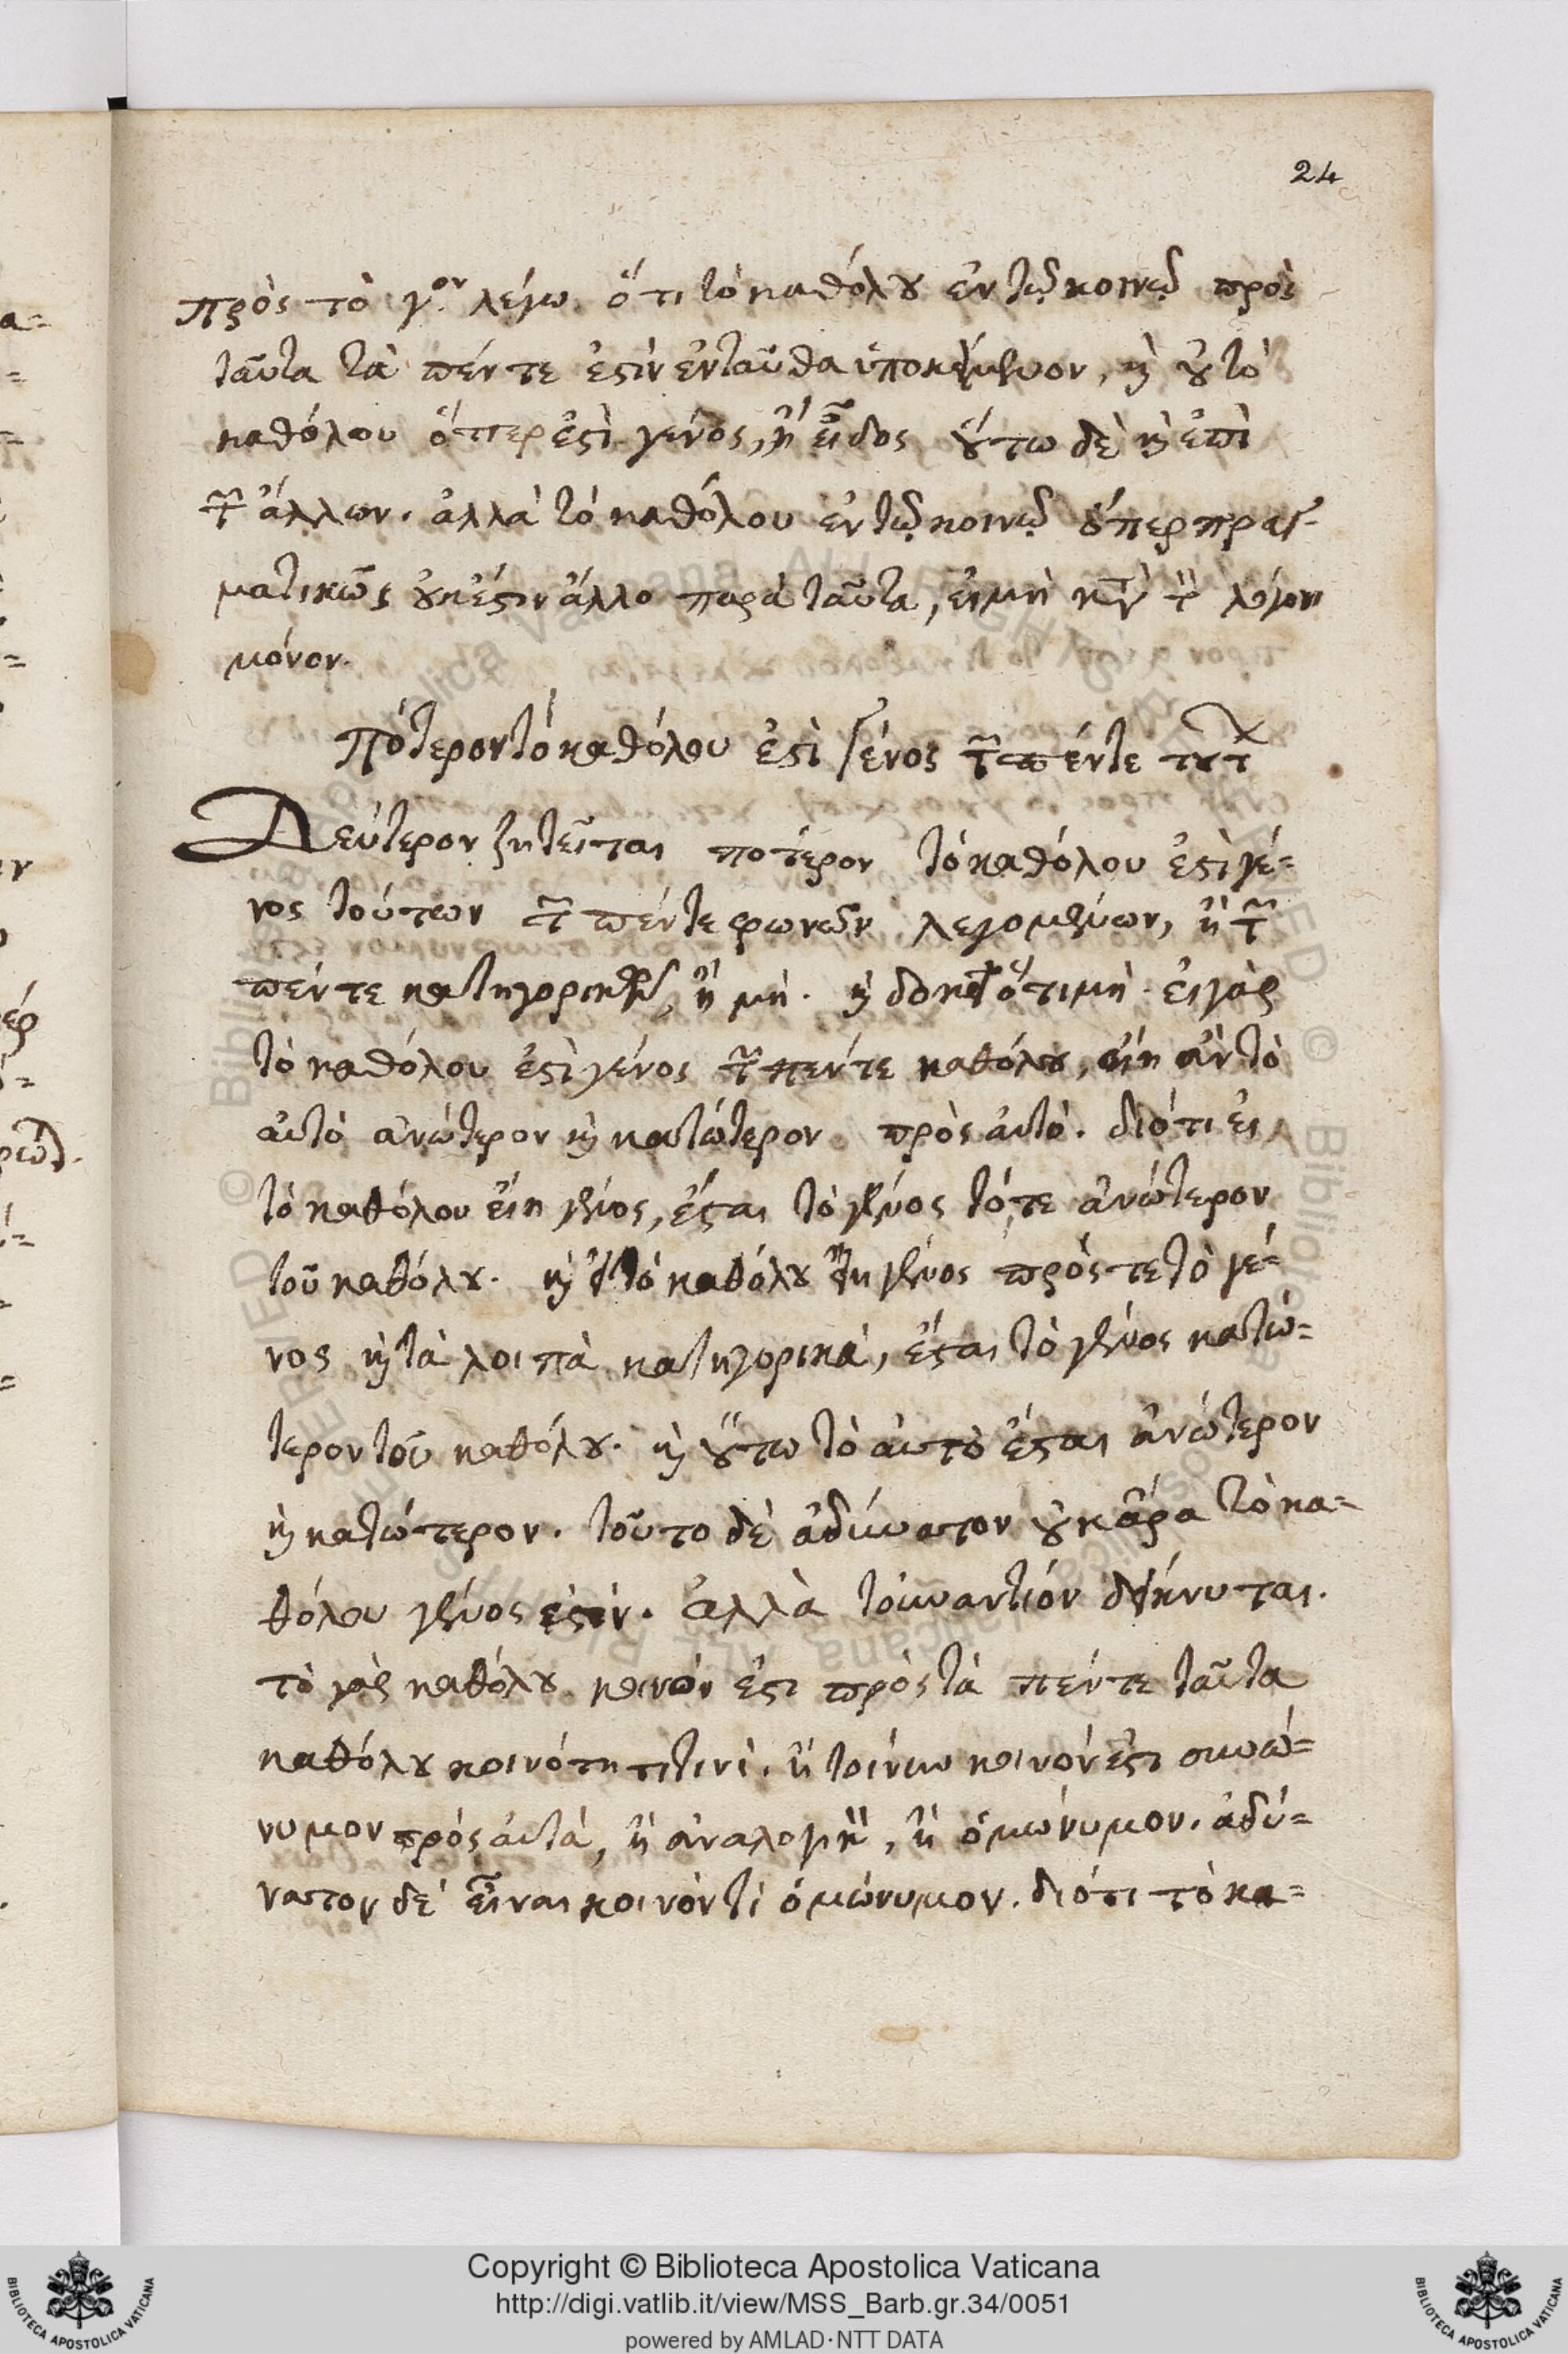 24
πρὸς τὸ γ.ον λέγω. ὅτι τὸ καθόλȣ ἐν τῷ κοινῷ πρὸς
ταῦτα τὰ πέντε ἐϛὶν ἐνταῦθα ὑποκείμενον, ϗ ȣ̓ τὸ
καθόλου ὅπερ ἐϛὶ γένος, ἢ εἶδος ȣ̔́τω δὲ ϗ ἐπὶ
τῶν ἄλλων. ἀλλὰ τὸ καθόλου ἐν τῷ κοινῷ ὅπερ πραγ-
ματικῶς ȣ̓κ ἔϛιν ἄλλο παρὰ ταῦτα, εἰμὴ κατὰ τὸν λόγον
μόνον.
Πότερον τὸ καθόλου ἐϛὶ γένος τῶν πέντε τȣ́των
Δεύτερον ζητεῖται ποτέρον τὸ καθόλου ἐϛὶ γέ=
νος τούτων τῶν πέντε φωνῶν λεγομένων, ἢ τῶν
πέντε κατηγορικῶν, ἢ μή. ϗ δοκεῖ ὅτι μή. εἰ γὰρ
τὸ καθόλου ἐϛὶ γένος τῶν πέντε καθόλȣ, εἴη ἂν τὸ
αὐτὸ ἀνώτερον ϗ κατώτερον πρὸς αὐτό. διότι εἰ
τὸ καθόλου εἴη γένος, ἔϛαι τὸ γένος τότε ἀνώτερον
τοῦ καθόλȣ. ϗ εἰ τὸ καθόλȣ εἴη γένος πρός τε τὸ γέ=
νος ϗ τὰ λοιπὰ κατηγορικά, ἔϛαι τὸ γένος κατώ=
τερον τοῦ καθόλȣ. ϗ ȣ̔́τω τὸ αὐτὸ ἔϛαι ἀνώτερον
ϗ κατώτερον. τοῦτο δὲ ἀδύνατον ȣ̓κ ἄρα τὸ κα=
θόλου γένος ἐϛίν. ἀλλὰ τοὐναντίον δείκνυται.
τὸ γὰρ καθόλȣ κοινόν ἐϛι πρὸς τὰ πέντε ταῦτα
καθόλȣ κοινότητι τινί. ἢ τοίνυν κοινόν ἐϛι συνώ=
νυμον πρὸς αὐτά, ἢ ἀναλογῇ, ἢ ὁμώνυμον. ἀδύ=
νατον δὲ εἶναι κοινόν τι ὁμώνυμον. διότι τὸ κα=
Copyright © Biblioteca Apostolica Vaticana
http://digi.vatlib.it/view/MSS_Barb.gr.34/0051
powered by AMLAD·NTT DATA